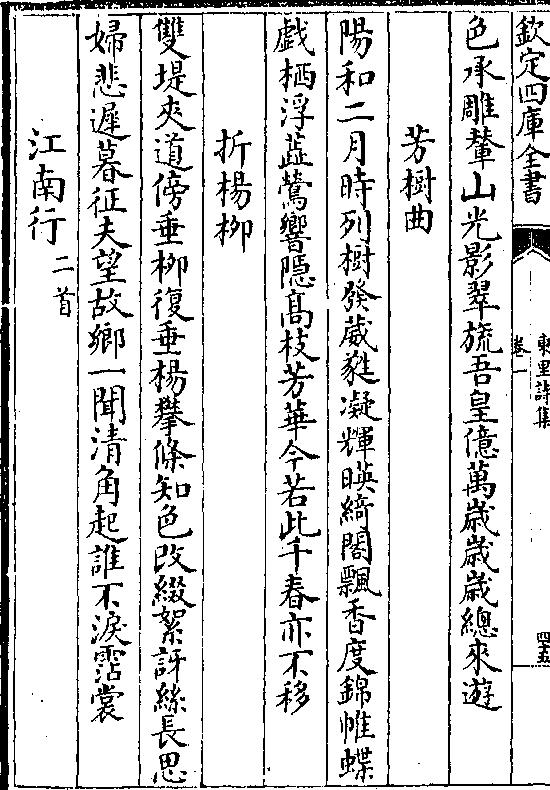 欽定四庫全書
東里詩集
卷一
四五
色承雕輦山光影翠旒吾皇億萬歲歲歲總來遊
芳樹曲
陽和二月時列樹發葳蕤凝輝暎綺閣飄香度錦帷蝶
戲栖浮蘂鶯響隱高枝芳華今若此千春亦不移
折楊柳
雙堤夾道傍垂柳復垂楊攀條知色改綴絮訝絲長思
婦悲遲暮征夫望故鄉一聞清角起誰不淚霑裳
江南行二首